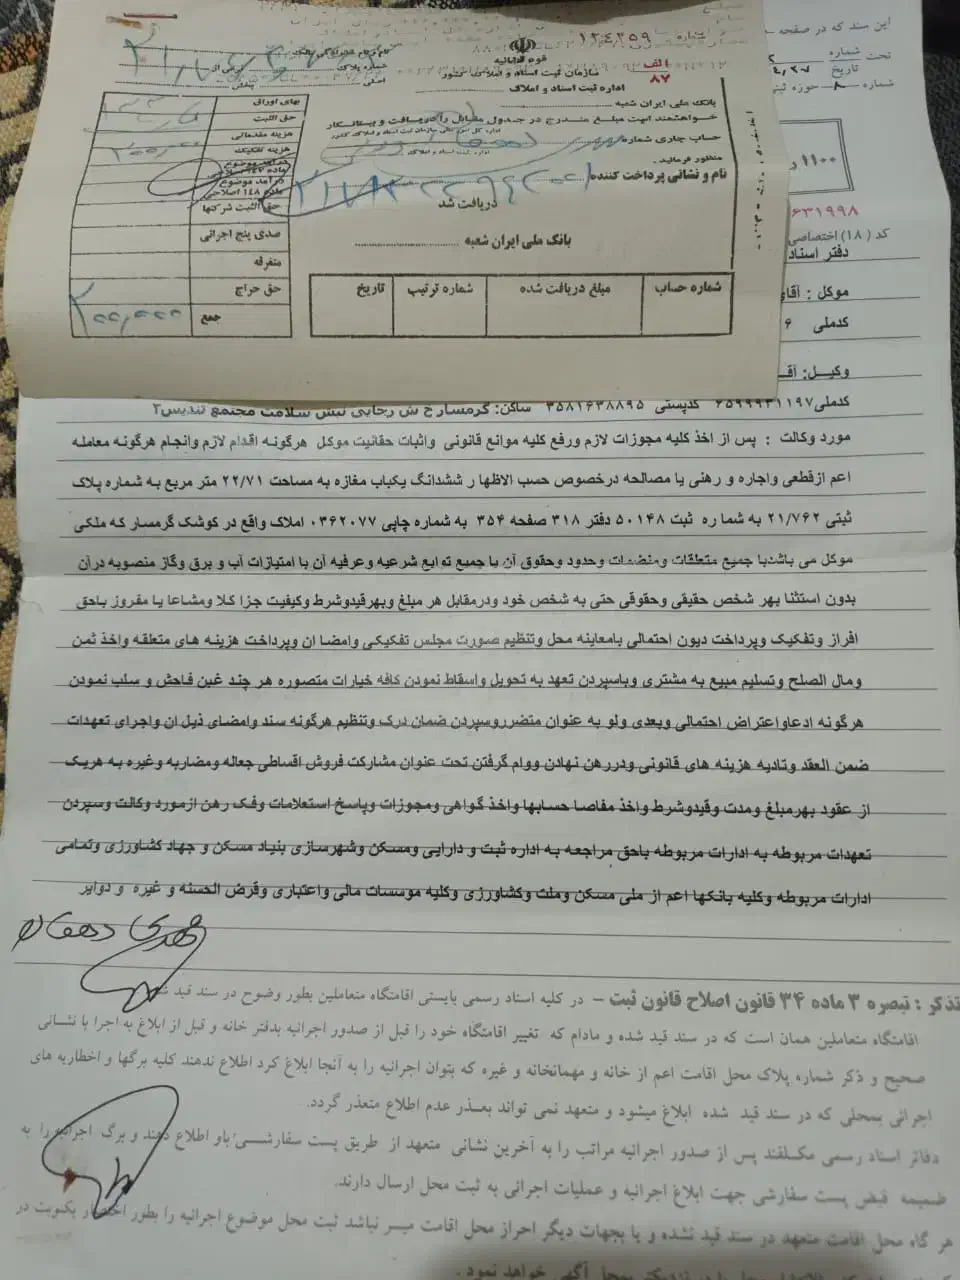 شماره ۱۲۴۳۵۹
الف
۸۷
قوه قضائیه
سازمان ثبت اسناد و املاک کشور
اداره ثبت اسناد و املاک
بانک ملی ایران شعبه
خواهشمند است مبلغ مندرج در جدول مقابل را دریافت و به بستانکار
حساب جاری شماره
منظور فرمایید.
نام و نشانی پرداخت کننده
دریافت شد
بانک ملی ایران شعبه
شماره حساب
مبلغ دریافت شده
شماره ترتیب
تاریخ
بهای اوراق
حق الثبت
هزینه مقدماتی
هزینه تفکیک
درآمد موضوع
ماده ۱۴۷ اصلاحی
درآمد موضوع
ماده ۱۴۸ اصلاحی
حق الثبت شرکتها
صدی پنج اجرائی
متفرقه
حق حراج
جمع
این سند که در صفحه
تحت شماره
تاریخ
شماره ۸ حوزه ثبتی
۱۱۰۰
۶۳۱۹۹۸
کد (۱۸) اختصاصی
دفتر اسناد
موکل : آقای
کدملی
وکیل: آقا
کدملی ۶۵۹۹۹۳۱۱۹۷ کدپستی ۳۵۸۱۶۳۸۸۹۵ ساکن: گرمسار خ ش رجایی نبش سلامت مجتمع تندیس۲
مورد وکالت : پس از اخذ کلیه مجوزات لازم ورفع کلیه موانع قانونی واثبات حقانیت موکل هرگونه اقدام لازم وانجام هرگونه معامله
اعم ازقطعی واجاره و رهنی یا مصالحه درخصوص حسب الاظهار ششدانگ یکباب مغازه به مساحت ۲۲/۷۱ متر مربع به شماره پلاک
ثبتی ۲۱/۷۶۲ به شماره ثبت ۵۰۱۴۸ دفتر ۳۱۸ صفحه ۳۵۴ به شماره چاپی ۰۳۶۲۰۷۷ املاک واقع در کوشک گرمسار که ملکی
موکل می باشدبا جمیع متعلقات ومنضمات وحدود وحقوق آن با جمیع توابع شرعیه وعرفیه آن با امتیازات آب و برق وگاز منصوبه درآن
بدون استثنا بهر شخص حقیقی وحقوقی حتی به شخص خود ودرمقابل هر مبلغ وبهرقیدوشرط وکیفیت جزا کلا ومشاعا یا مفروز باحق
افراز وتفکیک وپرداخت دیون احتمالی بامعاینه محل وتنظیم صورت مجلس تفکیکی وامضا ان وپرداخت هزینه های متعلقه واخذ ثمن
ومال الصلح وتسلیم مبیع به مشتری وباسپردن تعهد به تحویل واسقاط نمودن کافه خیارات متصوره هر چند غبن فاحش و سلب نمودن
هرگونه ادعاواعتراض احتمالی وبعدی ولو به عنوان متضرروسپردن ضمان درک وتنظیم هرگونه سند وامضای ذیل ان واجرای تعهدات
ضمن العقد وتادیه هزینه های قانونی ودررهن نهادن ووام گرفتن تحت عنوان مشارکت فروش اقساطی جعاله ومضاربه وغیره به هریک
از عقود بهرمبلغ ومدت وقیدوشرط واخذ مفاصا حسابها واخذ گواهی ومجوزات وپاسخ استعلامات وفک رهن ازمورد وکالت وسپردن
تعهدات مربوطه به ادارات مربوطه باحق مراجعه به اداره ثبت و دارایی ومسکن وشهرسازی بنیاد مسکن و جهاد کشاورزی وتمامی
ادارات مربوطه وکلیه بانکها اعم از ملی مسکن وملت وکشاورزی وکلیه موسسات مالی واعتباری وقرض الحسنه و غیره و دوایر
مهدی دهقان
تذکر : تبصره ۳ ماده ۳۴ قانون اصلاح قانون ثبت – در کلیه اسناد رسمی بایستی اقامتگاه متعاملین بطور وضوح در سند قید شود
اقامتگاه متعاملین همان است که در سند قید شده و مادام که تغییر اقامتگاه خود را قبل از صدور اجرائیه بدفتر خانه و قبل از ابلاغ به اجرا با نشانی
صحیح و ذکر شماره پلاک محل اقامت اعم از خانه و مهمانخانه و غیره که بتوان اجرائیه را به آنجا ابلاغ کرد اطلاع ندهند کلیه برگها و اخطاریه های
اجرائی بمحلی که در سند قید شده ابلاغ میشود و متعهد نمی تواند بعذر عدم اطلاع متعذر گردد.
دفاتر اسناد رسمی مکلفند پس از صدور اجرائیه مراتب را به آخرین نشانی متعهد از طریق پست سفارشی باو اطلاع دهند و برگ اجرائیه را به
ضمیمه قبض پست سفارشی جهت ابلاغ اجرائیه و عملیات اجرائی به ثبت محل ارسال دارند.
هر گاه محل اقامت متعهد در سند قید نشده و یا بجهات دیگر احراز محل اقامت میسر نباشد ثبت محل موضوع اجرائیه را بطور اختصار یکنوبت در